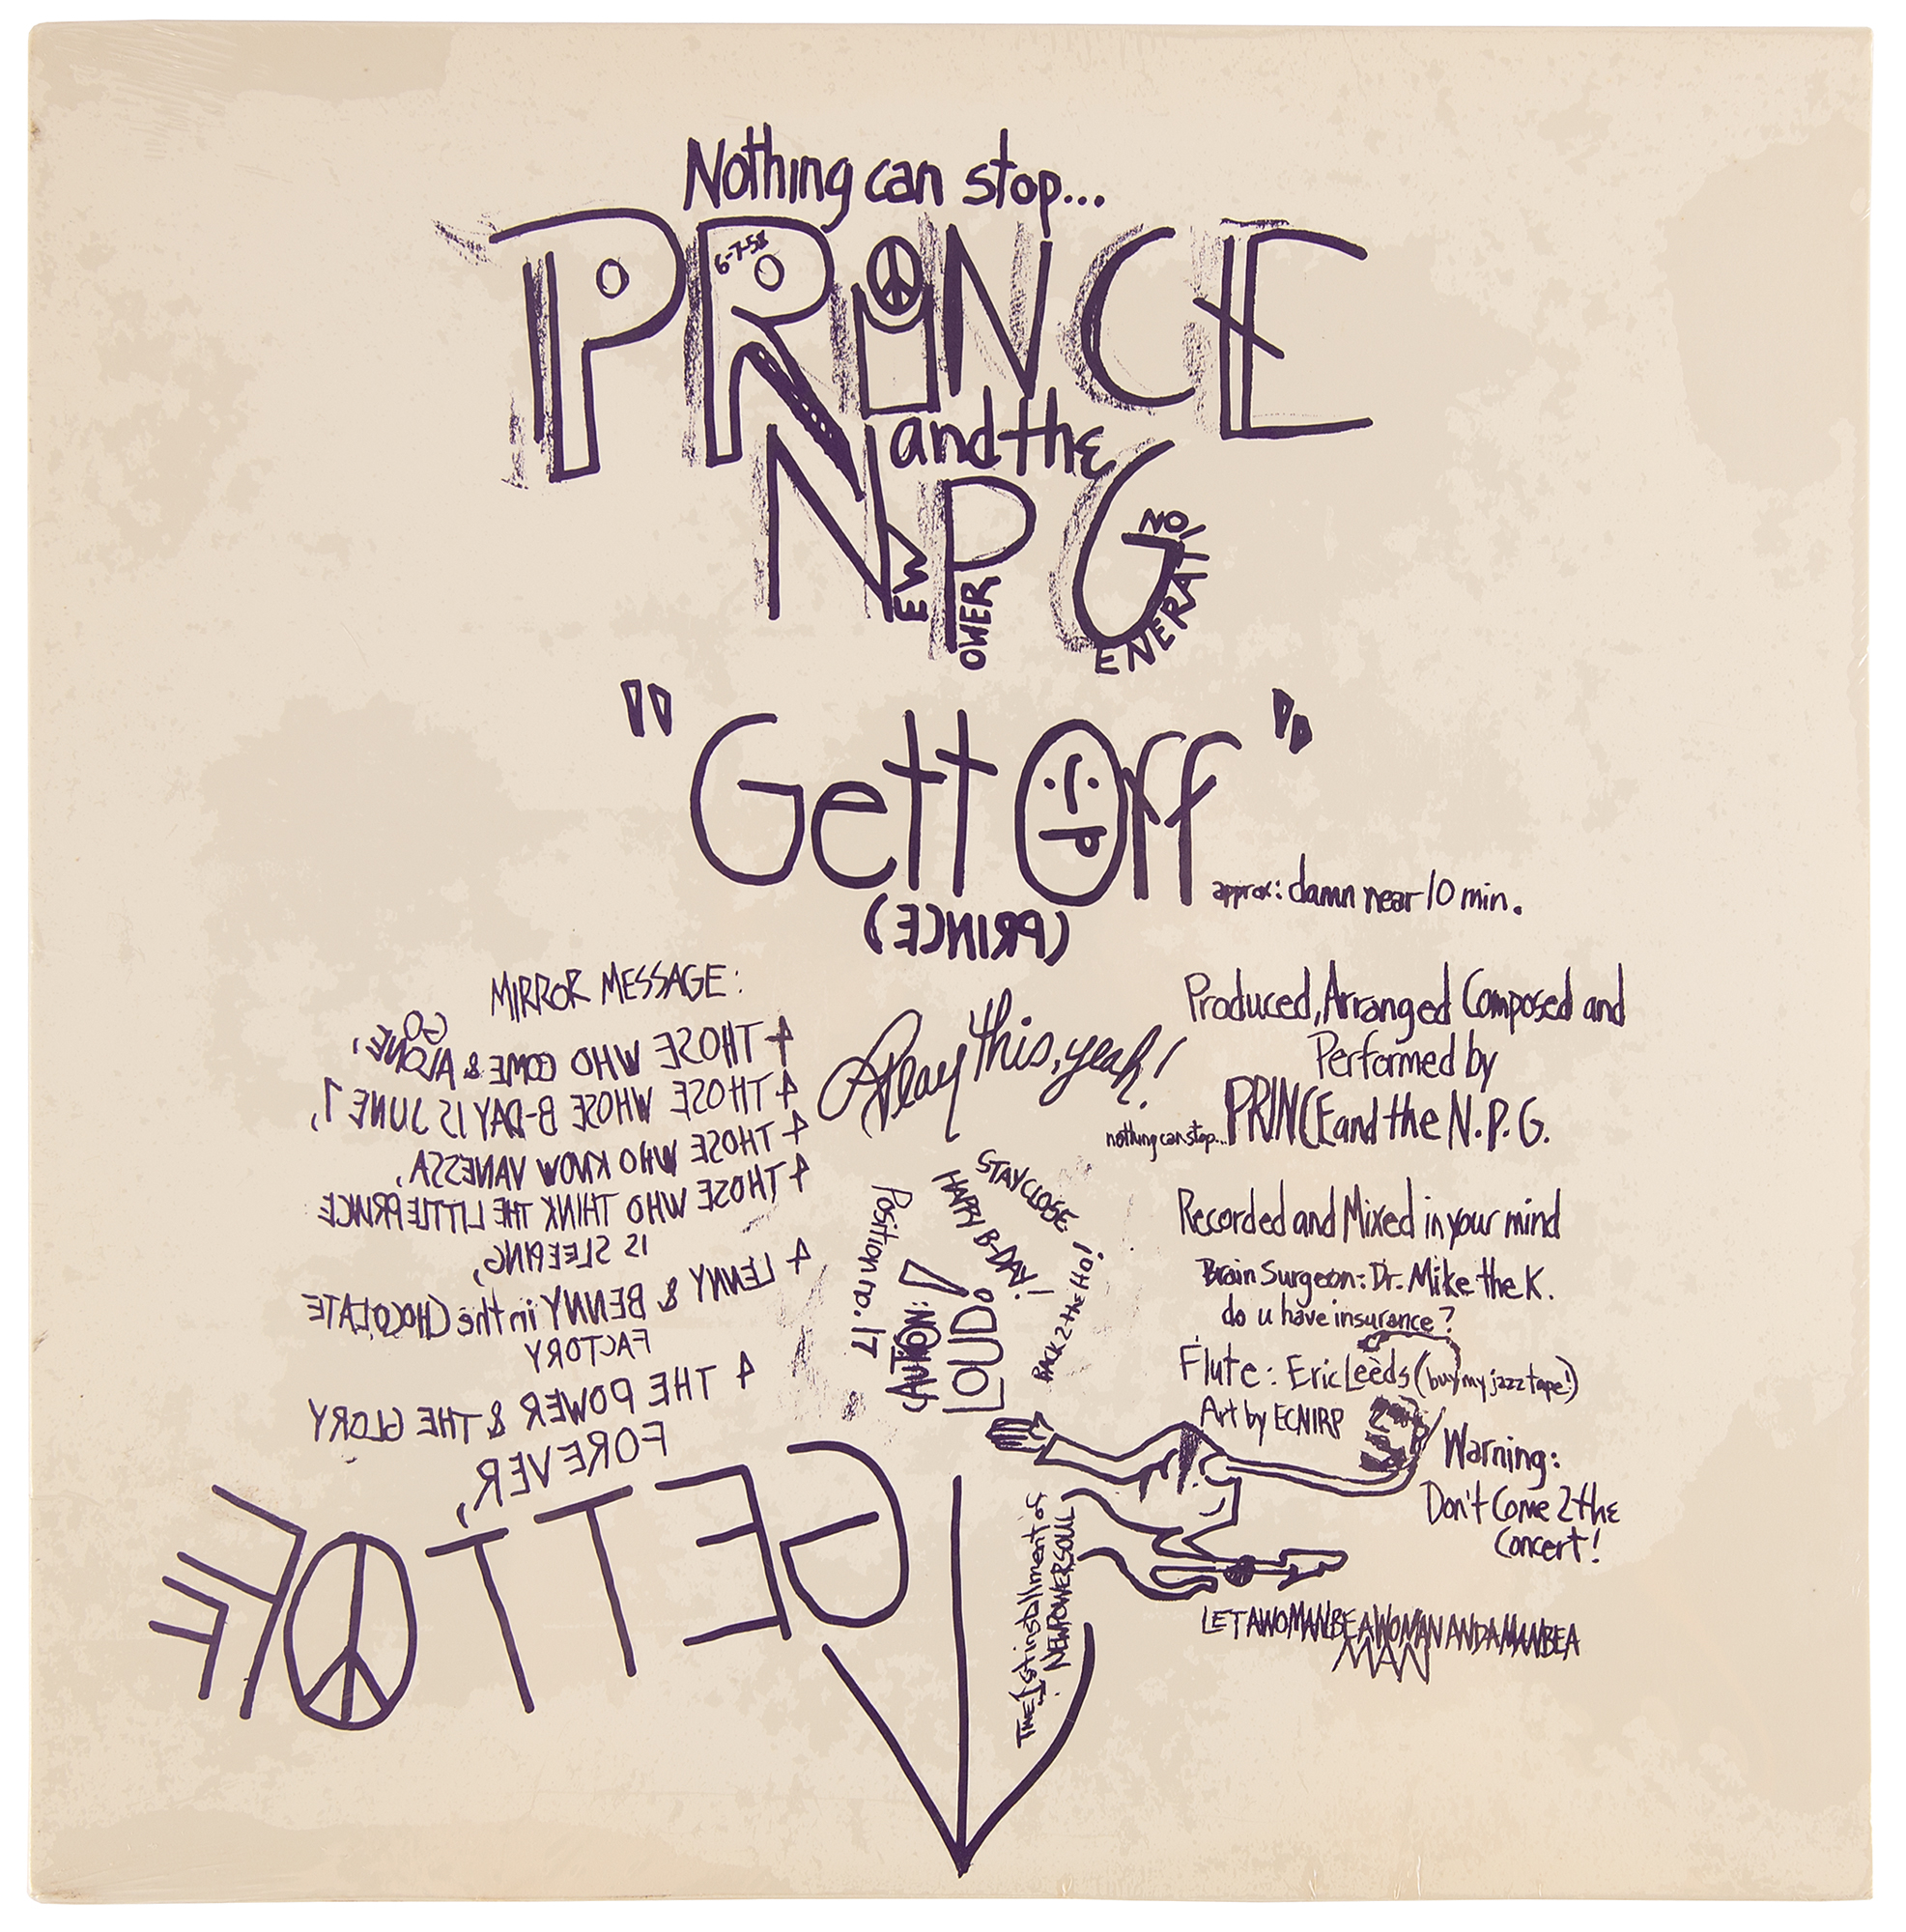 Nothing can stop...
PRINCE
6-7-58
and the
NPG
NEW
POWER
GENERATION
"Gett Off"
approx: damn near 10 min.
(PRINCE)
MIRROR MESSAGE:
4 THOSE WHO COME & GO ALONE,
4 THOSE WHOSE B-DAY IS JUNE 7,
4 THOSE WHO KNOW VANESSA,
4 THOSE WHO THINK THE LITTLE PRINCE
IS SLEEPING,
4 LENNY & BENNY in the CHOCOLATE
FACTORY
4 THE POWER & THE GLORY
FOREVER,
GETT OFF
Play this, yeah!
STAY CLOSE.
HAPPY B-DAY!
BACK 2 the Ho!
Position no. 17
CAUTION:
LOUD!
Produced, Arranged Composed and
Performed by
nothing can stop... PRINCE and the N.P.G.
Recorded and Mixed in your mind
Brain Surgeon: Dr. Mike the K.
do u have insurance?
Flute: Eric Leeds (buy my jazz tape!)
Art by ECNIRP
Warning:
Don't Come 2 the
Concert!
LETAWOMANBEAWOMANANDAMANBEA
MAN
THE 1st installment of
NEWPOWERSOUL